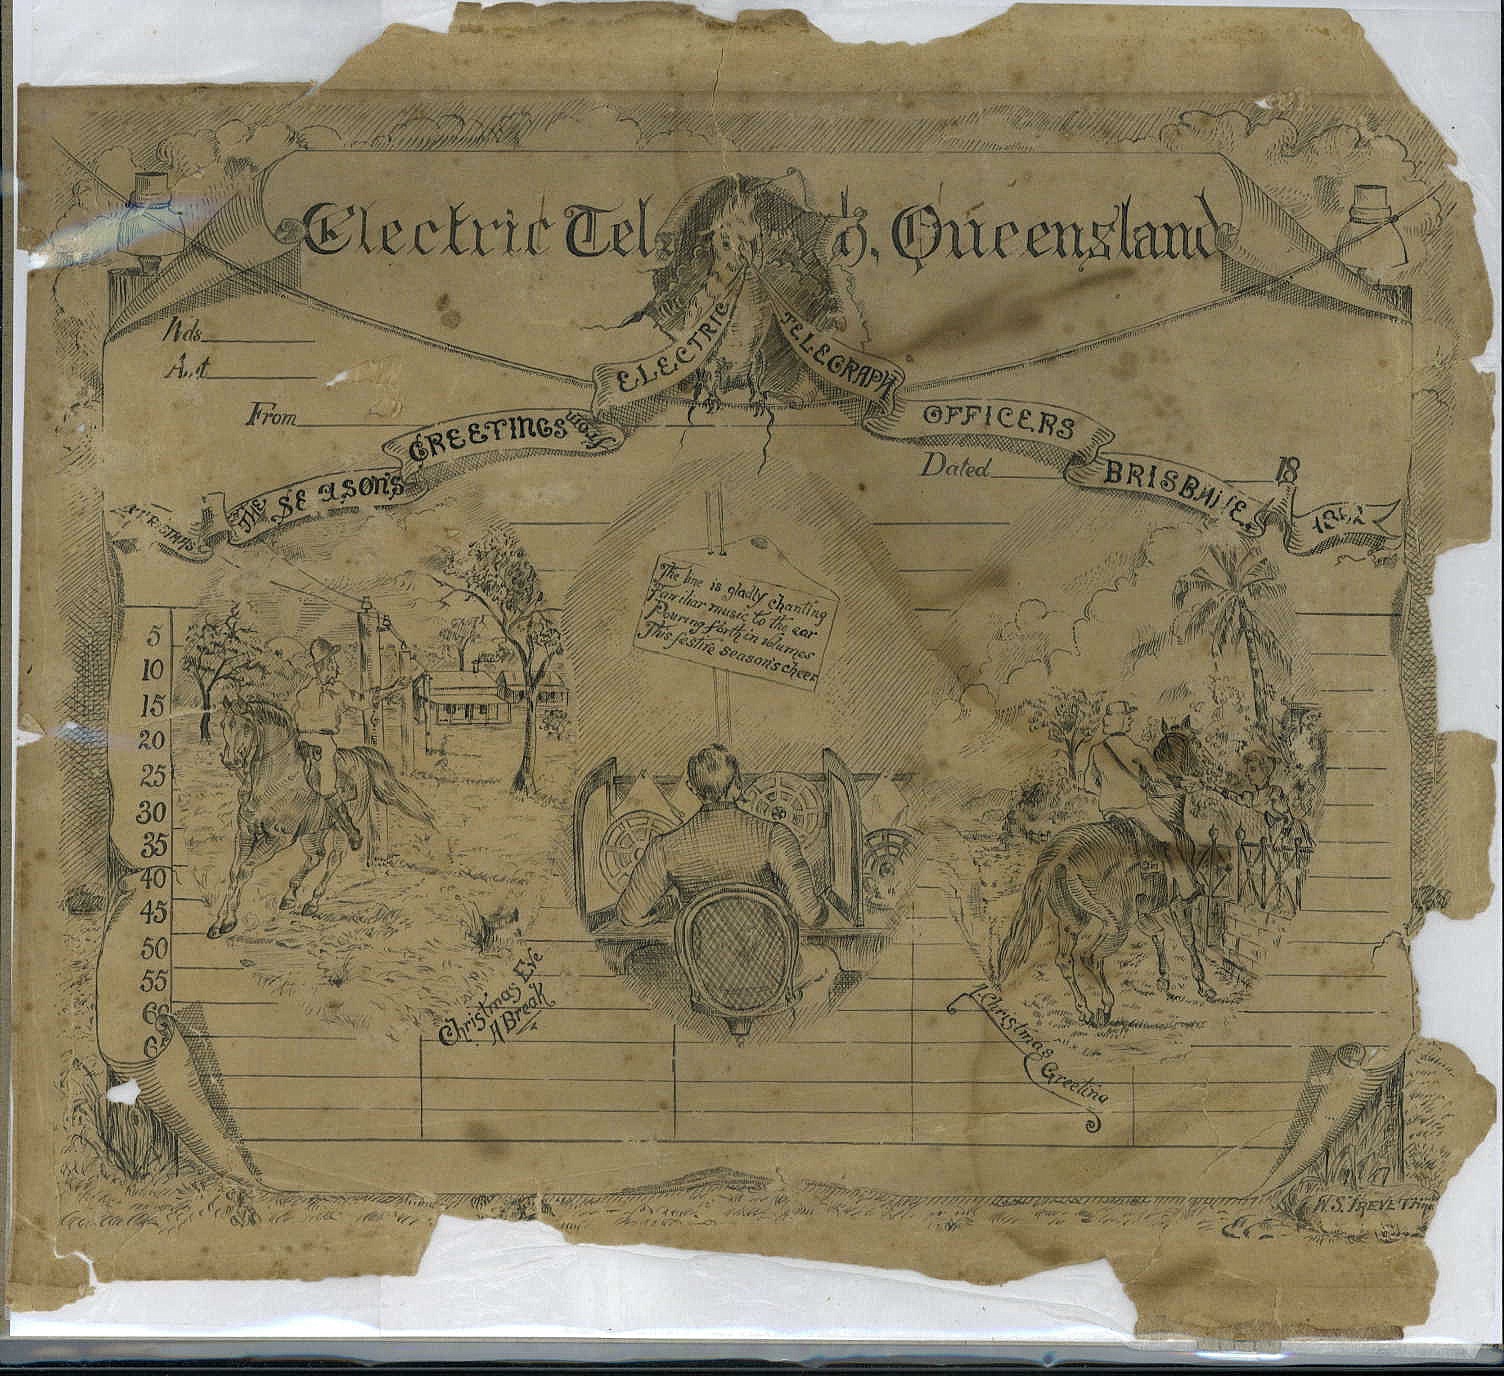 Electric Tel h, Queensland
Wds.
A.t
From
ELECTRIC TELEGRAPH
THE SEASON'S GREETINGS from
OFFICERS
BRISBANE
Dated 18
CHRISTMAS
The line is gladly chanting
Familiar music to the ear
Pouring forth in volumes
This festive season's cheer
5
10
15
20
25
30
35
40
45
50
55
Christmas Eve
A Break
Christmas
Greeting